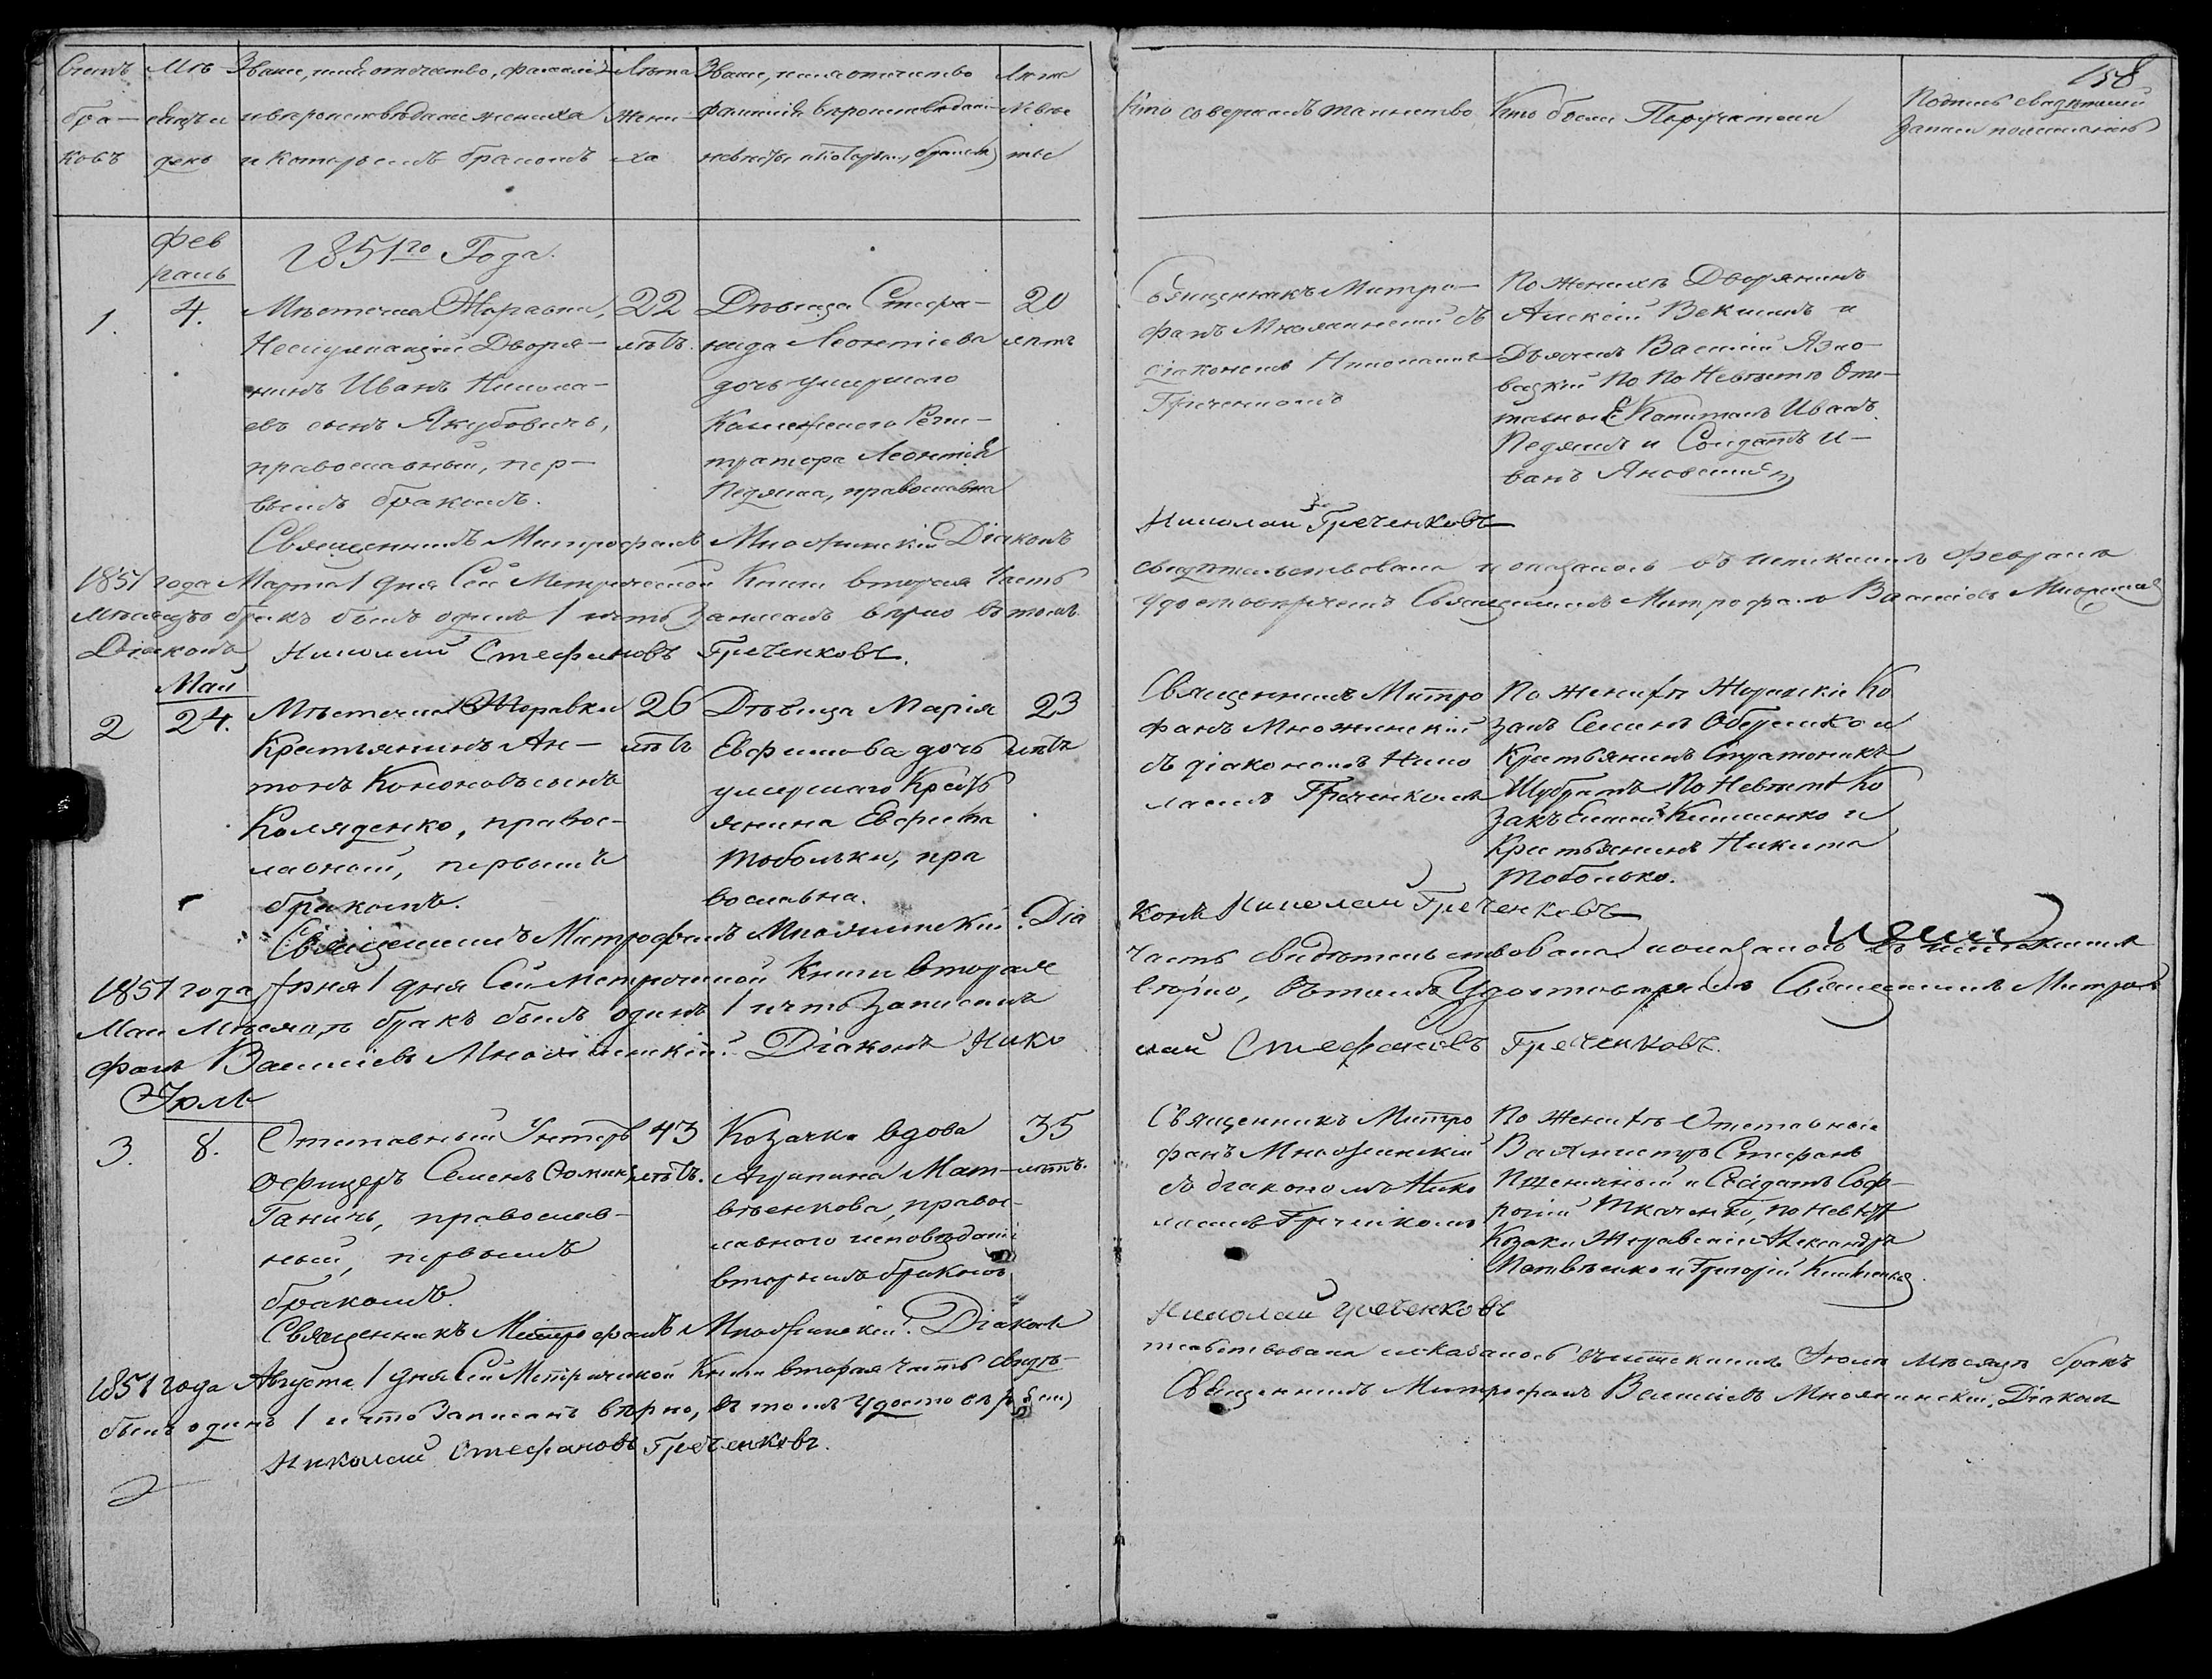 158
Счетъ
бра-
ковъ
Мѣ
сяцъ и
день
Званіе, имя, отчество, фамилія
и вѣроисповѣданіе жениха
и которымъ бракомъ
Лѣта
жени-
ха
Званіе, имя отчество
фамилія вѣроисповѣданіе
невѣсты и которымъ бракомъ
Лѣта
Невѣс
ты
Кто совершалъ таинство
Кто были Поручители
Подпись свидѣтелей
записи по желанію
Фев
раль
1851го Года.
1.
4.
Мѣстечка Журавки,
Неслужащій Дворя-
нинъ Иванъ Никола-
евъ сынъ Якубовичъ,
православный, пер-
вымъ бракомъ.
22
лѣтъ.
Дѣвица Стефа-
нида Леонтіева
дочь умершаго
Коллежскаго Реги-
тратора Леонтія
Педяша, православна
20
лѣтъ
Священникъ Митро-
фанъ Множинскій съ
діакономъ Николаемъ
Греченкомъ
По Женихѣ Дворянинъ
Алексій Векшинъ и
Дьячекъ Василій Язло-
вецкій По Невѣстѣ Отс-
тавной Капитанъ Иванъ
Педяшъ и Солдатъ И-
ванъ Яновскій
Священникъ Митрофанъ Множинскій Діаконъ
Николай Греченковъ
1851 года Марта 1 дня Сей Метрической Книги вторая Часть
свидѣтельствована и оказалось въ истекшемъ Февралѣ
мѣсяцѣ бракъ былъ одинъ 1 и что записанъ вѣрно въ томъ
удостовѣряемъ Священникъ Митрофанъ Василіевъ Множинскій
Діаконъ Николай Стефановъ Греченковъ.
Май
2
24.
Мѣстечка Журавки
Крестьянинъ Ан-
тонъ Кононовъ сынъ
Коляденко, правос-
лавный, первымъ
бракомъ.
26
лѣтъ
Дѣвица Марія
Евфимова дочь
умершаго Крест
янина Евфима
Тоболки, пра
вославна.
23
лѣтъ
Священникъ Митро
фанъ Множинскій
съ діакономъ Нико
лаемъ Греченкомъ
По Женихѣ Журавскіе Ко
закъ Семенъ Оберемко и
Крестьянинъ Стратоникъ
По Невѣстѣ Ко
закъ
Крестьянинъ Никита
Тоболько.
Священникъ Митрофанъ Множинскій. Діа
конъ Николай Греченковъ
1851 года Іюня 1 дня Сей Метрической Книги вторая
часть свидѣтельствована и оказалось въ истекшемъ
Маи Мѣсяцѣ бракъ былъ одинъ 1 и что записанъ
вѣрно, въ томъ Удостовѣряемъ Священникъ Митро
фанъ Василіевъ Множинскій. Діаконъ Нико
лай Стефановъ Греченковъ.
Іюль
3.
8.
Отставный Унтеръ
Офицеръ Семенъ Фомин
Ганичъ, православ-
ный, первымъ
бракомъ.
43
лѣтъ.
Козачка вдова
Агрипина Мат-
вѣенкова, правос-
лавного исповѣданія
вторымъ бракомъ
35
лѣтъ.
Священникъ Митро
фанъ Множинскій
съ діакономъ Нико
лаемъ Греченкомъ
По Женихѣ Отставные
Вахмистръ Стефанъ
Пшеничный и Солдатъ Соф-
роній Ткаченко, по невѣстѣ
Козаки Журавскіе Александръ
Матвѣенко и Григорій
Священникъ Митрофанъ Множинскій. Діаконъ
Николай Греченковъ
1851 года Августа 1 дня Сей Метрической Книги вторая Часть свидѣ-
тельствована и оказалось въ истекшемъ Іюлѣ Мѣсяцѣ бракъ
былъ одинъ 1 и что Записанъ вѣрно, въ томъ Удостовѣряемъ
Священникъ Митрофанъ Василіевъ Множинскій. Діаконъ
Николай Стефановъ Греченковъ.